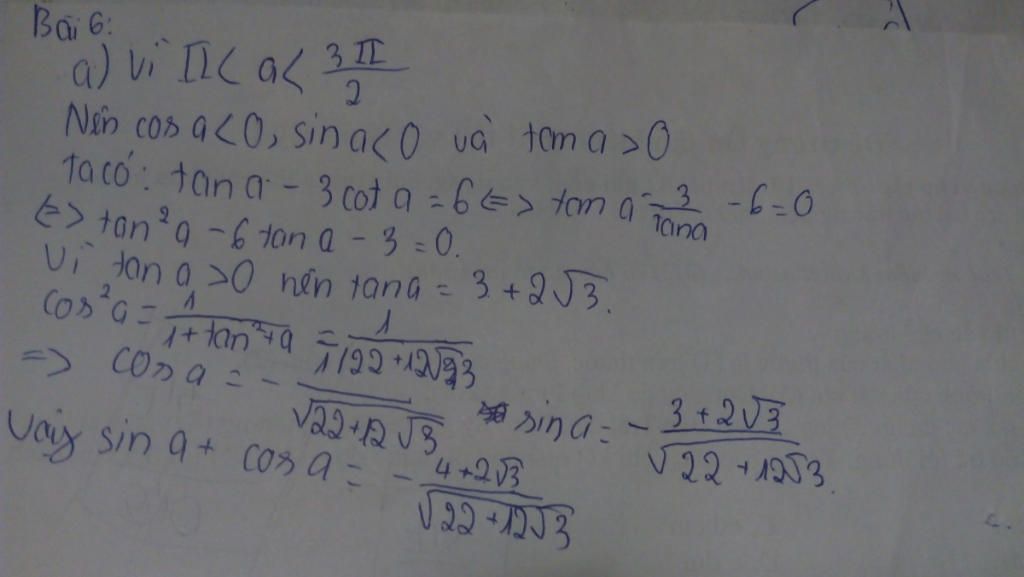 Bài 6:
a) Vì π < a < 3π/2
Nên cos a < 0, sin a < 0 và tan a > 0
Ta có: tan a - 3 cot a = 6 <=> tan a - 3/tan a - 6 = 0
<=> tan²a - 6 tan a - 3 = 0.
Vì tan a > 0 nên tan a = 3 + 2√3.
cos²a = 1/(1 + tan²+a) = 1/(22 + 12√3)
=> cos a = - 1/√(22 + 12√3) sin a = - (3 + 2√3)/√(22 + 12√3).
Vậy sin a + cos a = - (4 + 2√3)/√(22 + 12√3)